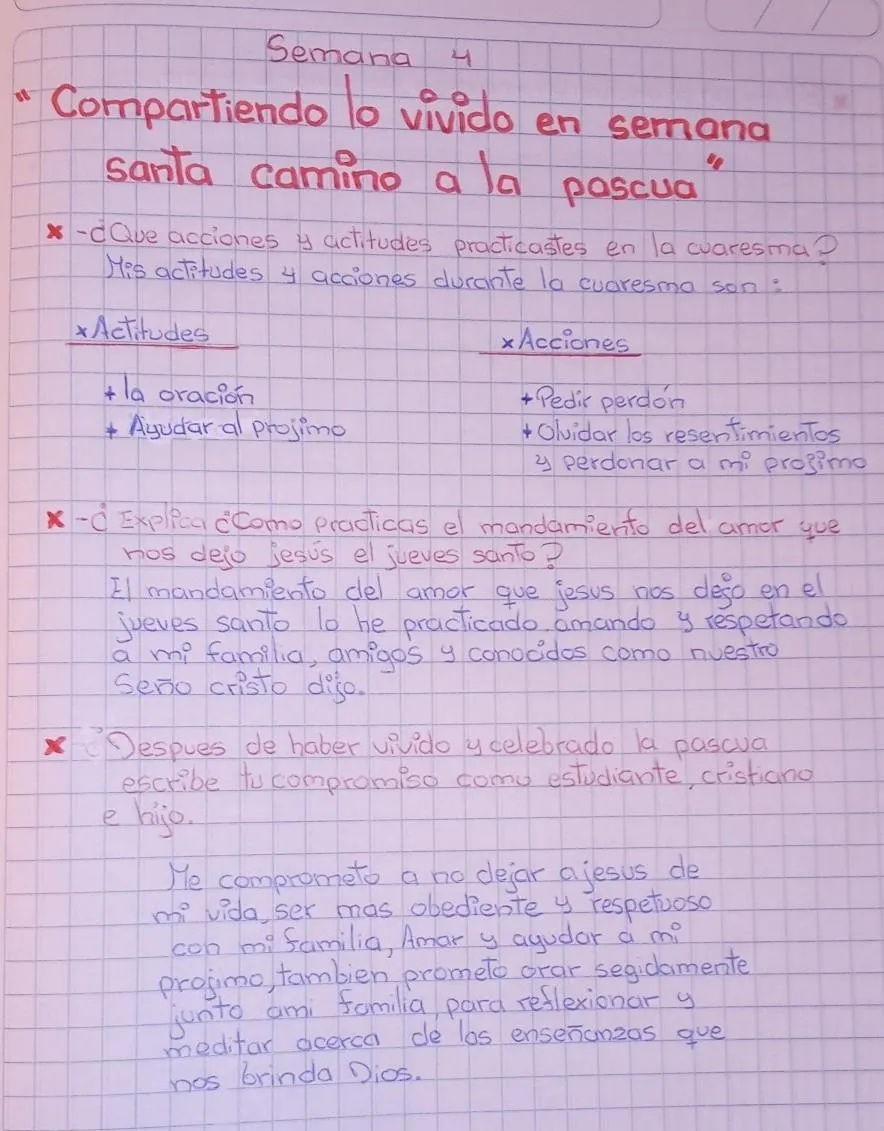 Semana 4
"Compartiendo lo vivido en semana
santa camino a la pascua"
x -¿Que acciones y actitudes practicastes en la cuaresma?
Mis actitudes y acciones durante la cuaresma son:
x Actitudes
+ la oración
+ Ayudar al projimo
x Acciones
+ Pedir perdón
+ Olvidar los resentimientos
y perdonar a mi projimo
x -¿ Explica ¿Como practicas el mandamiento del amor que
nos dejo jesús el jueves santo?
El mandamiento del amor que jesus nos dejo en el
jueves santo lo he practicado amando y respetando
a mi familia, amigos y conocidos como nuestro
Seño cristo dijo.
x ¿Despues de haber vivido y celebrado la pascua
escribe tu compromiso como estudiante, cristiano
e hijo.
Me comprometo a no dejar a jesus de
mi vida, ser mas obediente y respetuoso
con mi familia, Amar y ayudar a mi
projimo, tambien prometo orar segidamente
junto ami familia, para reflexionar y
meditar acerca de las enseñanzas que
nos brinda Dios.